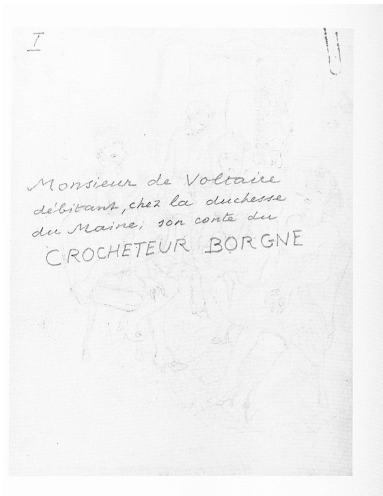 I
Monsieur de Voltaire
débitant, chez la duchesse
du Maine, son conte du
CROCHETEUR BORGNE